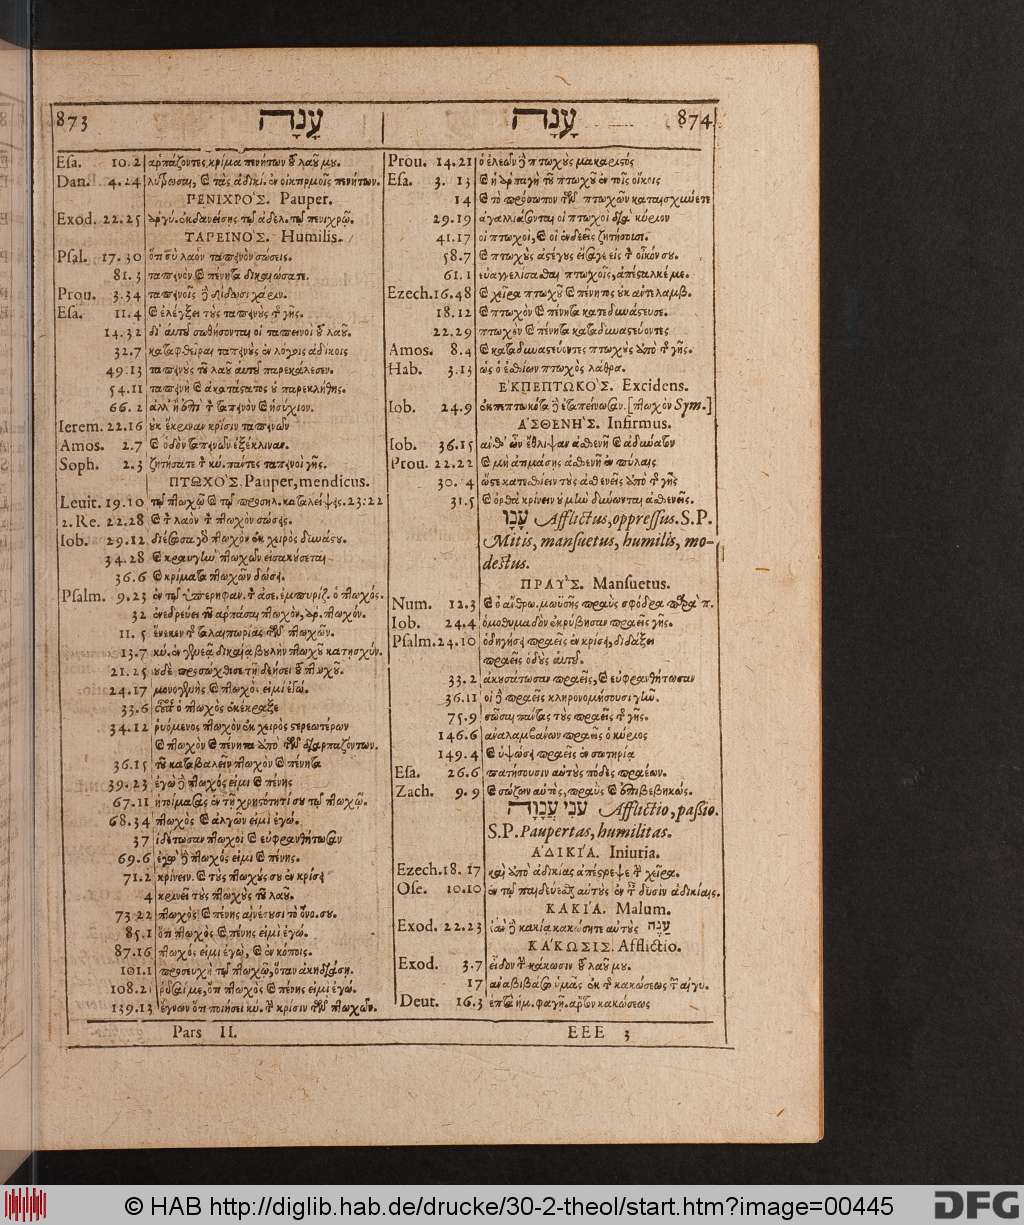 873 עָנָה
Esa. 10.2 ἁρπάζοντες κρίμα πενήτων τοῦ λαοῦ μου.
Dan. 4.24 λύτρωσαι, καὶ τὰς ἀδικί. ἐν οἰκτιρμοῖς πενήτων.
ΠΕΝΙΧΡΟ'Σ. Pauper.
Exod. 22.25 ἀργύ. ἐκδανείσῃς τῷ ἀδελ. τῷ πενιχρῷ.
ΤΑΡΕΙΝΟ'Σ. Humilis.
Psal. 17.30 ὅτι σὺ λαὸν ταπεινὸν σώσεις.
81.3 ταπεινὸν καὶ πένητα δικαιώσατε.
Prou. 3.34 ταπεινοῖς δὲ δίδωσι χάριν.
Esa. 11.4 καὶ ἐλέγξει τοὺς ταπεινοὺς τῆς γῆς.
14.32 δι' αὐτοῦ σωθήσονται οἱ ταπεινοὶ τοῦ λαοῦ.
32.7 καταφθεῖραι ταπεινοὺς ἐν λόγοις ἀδίκοις
49.13 ταπεινοὺς τοῦ λαοῦ αὐτοῦ παρεκάλεσεν.
54.11 ταπεινὴ καὶ ἀκατάστατος οὐ παρεκλήθης.
66.2 ἀλλ' ἢ ἐπὶ τὸν ταπεινὸν καὶ ἡσύχιον.
Ierem. 22.16 οὐκ ἔκριναν κρίσιν ταπεινῶν
Amos. 2.7 καὶ ὁδὸν ταπεινῶν ἐξέκλιναν.
Soph. 2.3 ζητήσατε τὸν κύ. πάντες ταπεινοὶ γῆς.
ΠΤΩΧΟ'Σ. Pauper, mendicus.
Leuit. 19.10 τῷ πτωχῷ καὶ τῷ προσηλ. καταλείψεις. 23:22
2. Re. 22.28 καὶ τὸν λαὸν τὸν πτωχὸν σώσεις.
Iob. 29.12 διέσωσα γὰρ πτωχὸν ἐκ χειρὸς δυνάστου.
34.28 καὶ κραυγὴν πτωχῶν εἰσακούσεται
36.6 καὶ κρίματα πτωχῶν δώσει.
Psalm. 9.23 ἐν τῷ ὑπερηφαν. τὸν ἀσε. ἐμπυρίζ. ὁ πτωχός.
32 ἐνεδρεύει τοῦ ἁρπάσαι πτωχὸν, ἁρ. πτωχόν.
11.5 ἕνεκεν τῆς ταλαιπωρίας τῶν πτωχῶν.
13.7 κύ. ἐν γενεᾷ δικαίᾳ βουλὴν πτωχοῦ κατησχύν.
21.25 οὐδὲ προσώχθισε τῇ δεήσει τοῦ πτωχοῦ.
24.17 μονογενὴς καὶ πτωχός εἰμι ἐγώ.
33.6 οὗτος ὁ πτωχὸς ἐκέκραξε
34.12 ῥυόμενος πτωχὸν ἐκ χειρὸς στερεωτέρων
καὶ πτωχὸν καὶ πένητα ἀπὸ τῶν διαρπαζόντων.
36.15 τοῦ καταβαλεῖν πτωχὸν καὶ πένητα
39.23 ἐγὼ δὲ πτωχός εἰμι καὶ πένης
67.11 ἡτοίμασας ἐν τῇ χρηστότητί σου τῷ πτωχῷ.
68.34 πτωχὸς καὶ ἀλγῶν εἰμι ἐγώ.
37 ἰδέτωσαν πτωχοὶ καὶ εὐφρανθήτωσαν
69.6 ἐγὼ δὲ πτωχός εἰμι καὶ πένης.
71.2 κρίνειν. καὶ τοὺς πτωχούς σου ἐν κρίσει
4 κρινεῖ τοὺς πτωχοὺς τοῦ λαοῦ.
73 22 πτωχὸς καὶ πένης αἰνέσουσι τὸ ὄνο. σου.
85.1 ὅτι πτωχὸς καὶ πένης εἰμὶ ἐγώ.
87.16 πτωχός εἰμι ἐγὼ, καὶ ἐν κόποις.
101.1 προσευχὴ τῷ πτωχῷ, ὅταν ἀκηδιάσῃ.
108.21 ῥῦσαί με, ὅτι πτωχὸς καὶ πένης εἰμὶ ἐγώ.
139.13 ἔγνων ὅτι ποιήσει κύ. τὴν κρίσιν τῶν πτωχῶν.
Pars II.
עָנָה 874
Prou. 14.21 ὁ ἐλεῶν δὲ πτωχοὺς μακαριστός
Esa. 3.13 καὶ ἡ ἁρπαγὴ τοῦ πτωχοῦ ἐν τοῖς οἴκοις
14 καὶ τὸ πρόσωπον τῶν πτωχῶν καταισχύνετε
29.19 ἀγαλλιάσονται οἱ πτωχοὶ διὰ κύριον
41.17 οἱ πτωχοὶ, καὶ οἱ ἐνδεεῖς ζητήσουσι.
58.7 καὶ πτωχοὺς ἀστέγους εἴσαγε εἰς τὸν οἶκόν σου.
61.1 εὐαγγελίσασθαι πτωχοῖς, ἀπέσταλκέ με.
Ezech. 16.48 καὶ χεῖρα πτωχοῦ καὶ πένητος οὐκ ἀντελαμβ.
18.12 καὶ πτωχὸν καὶ πένητα κατεδυνάστευσε.
22.29 πτωχὸν καὶ πένητα καταδυναστεύοντες
Amos. 8.4 καὶ καταδυναστεύοντες πτωχοὺς ἀπὸ τῆς γῆς.
Hab. 3.13 ὡς ὁ ἐσθίων πτωχὸς λάθρα.
Ε'ΚΠΕΠΤΩΚΟ'Σ. Excidens.
Iob. 24.9 ἐκπεπτωκότα δὲ ἐταπείνωσαν. [πτωχὸν Sym.]
Α'ΣΘΕΝΗ'Σ. Infirmus.
Iob. 36.15 ἀνθ' ὧν ἔθλιψαν ἀσθενῆ καὶ ἀδύνατον
Prou. 22.22 καὶ μὴ ἀτιμάσῃς ἀσθενῆ ἐν πύλαις
30. 4 ὥστε κατεσθίειν τοὺς ἀσθενεῖς ἀπὸ τῆς γῆς
31.5 καὶ ὀρθὰ κρίνειν οὐ μὴ δύνωνται ἀσθενεῖς.
עָנָו Afflictus, oppressus. S.P.
Mitis, mansuetus, humilis, mo-
destus.
ΠΡΑΥ'Σ. Mansuetus.
Num. 12.3 καὶ ὁ ἄνθρω. μωϋσῆς πραῢς σφόδρα παρὰ π.
Iob. 24.4 ὁμοθυμαδὸν ἐκρύβησαν πραεῖς γῆς.
Psalm. 24.10 ὁδηγήσει πραεῖς ἐν κρίσει, διδάξει
πραεῖς ὁδοὺς αὐτοῦ.
33.2 ἀκουσάτωσαν πραεῖς, καὶ εὐφρανθήτωσαν
36.11 οἱ δὲ πραεῖς κληρονομήσουσι γῆν.
75.9 σῶσαι πάντας τοὺς πραεῖς τῆς γῆς.
146.6 ἀναλαμβάνων πραεῖς ὁ κύριος
149.4 καὶ ὑψώσει πραεῖς ἐν σωτηρίᾳ
Esa. 26.6 πατήσουσιν αὐτοὺς πόδες πραέων.
Zach. 9. 9 καὶ σώζων αὐτὸς, πραῢς καὶ ἐπιβεβηκώς.
עֳנִי עֲנָוָה Afflictio, passio.
S.P. Paupertas, humilitas.
Α'ΔΙΚΙ'Α. Iniuria.
Ezech. 18.17 καὶ ἀπὸ ἀδικίας ἀπέστρεψε τὴν χεῖρα.
Ose. 10.10 ἐν τῷ παιδεύεσθαι αὐτοὺς ἐν ταῖς δυσὶν ἀδικίαις.
ΚΑΚΙ'Α. Malum.
Exod. 22.23 ἐὰν δὲ κακίᾳ κακώσητε αὐτοὺς עַנֵּה
ΚΑ'ΚΩΣΙΣ. Afflictio.
Exod. 3.7 εἶδον τὴν κάκωσιν τοῦ λαοῦ μου.
17 ἀναβιβάσω ὑμᾶς ἐκ τῆς κακώσεως τῶν αἰγυ.
Deut. 16.3 ἑπτὰ ἡμ. φαγῇ. ἄρτον κακώσεως
EEE 3
© HAB http://diglib.hab.de/drucke/30-2-theol/start.htm?image=00445
DFG